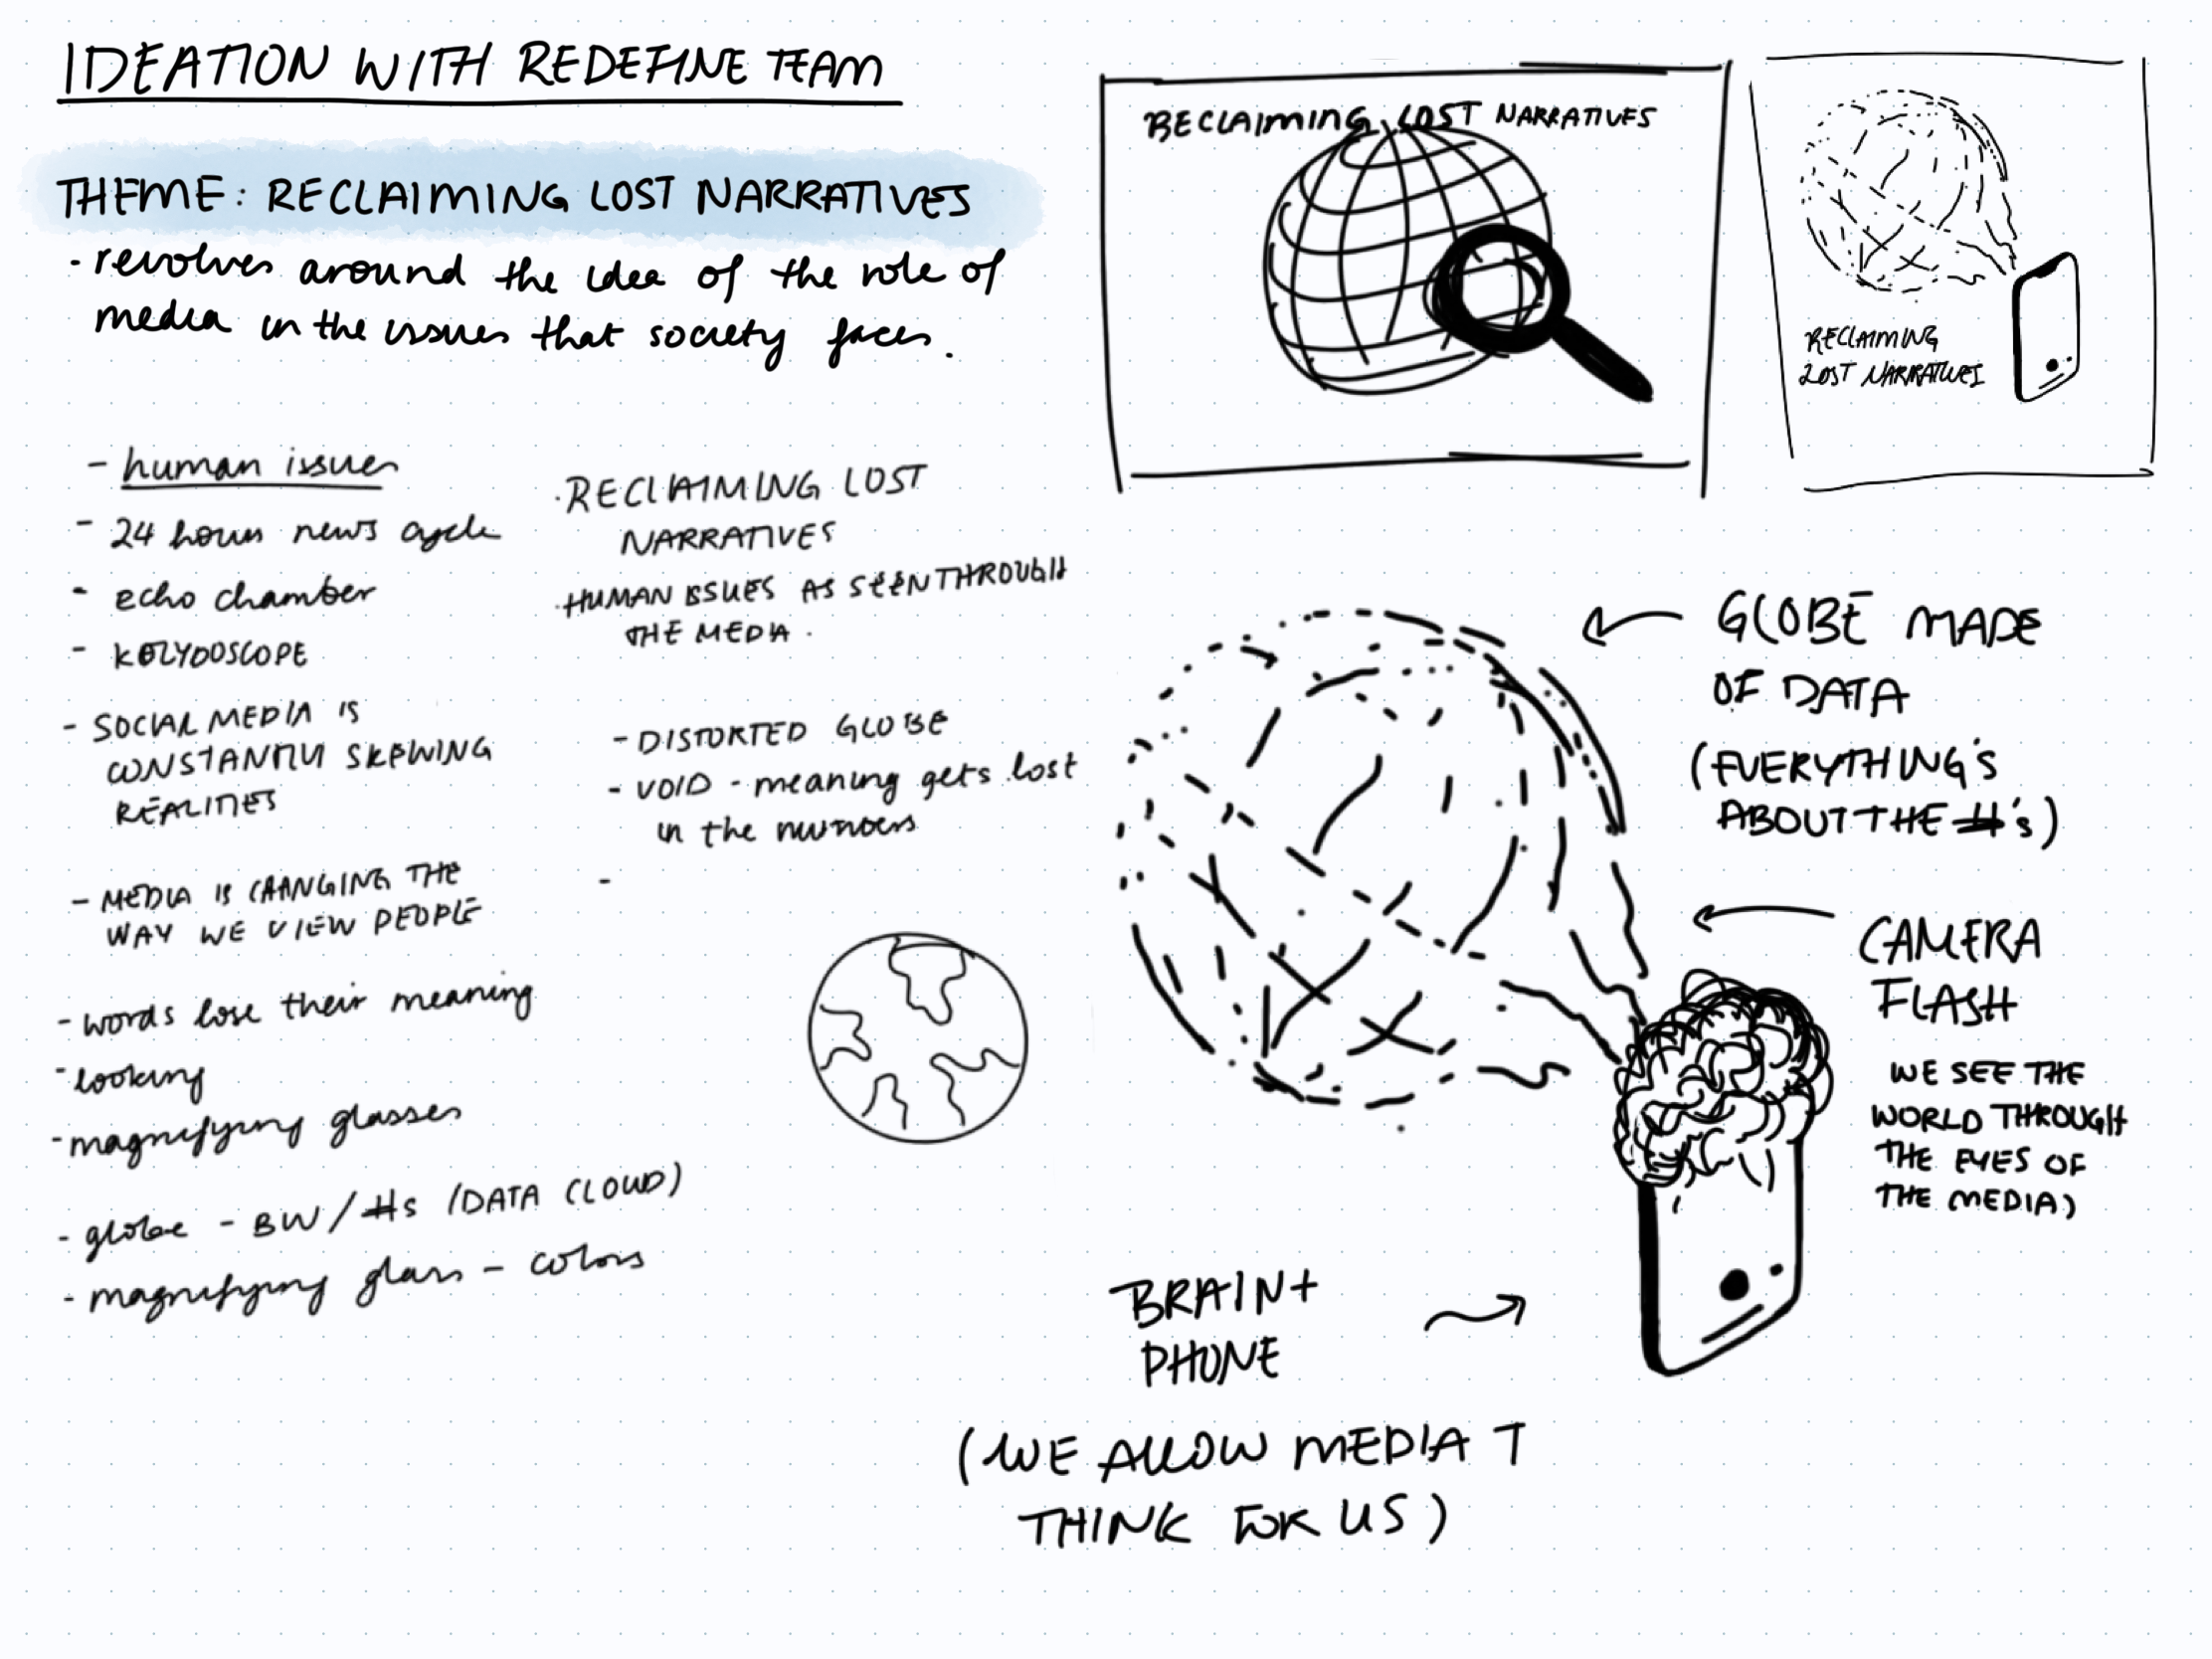 IDEATION WITH REDEFINE TEAM
THEME: RECLAIMING LOST NARRATIVES
· revolves around the idea of the role of
media in the issues that society faces.
- human issues
- 24 hours news cycle
- echo chamber
- KOLYDOSCOPE
- SOCIAL MEDIA IS
CONSTANTLY SKEWING
REALITIES
- MEDIA IS CHANGING THE
WAY WE VIEW PEOPLE
- words lose their meaning
- looking
- magnifying glasses
- globe - BW/#s (DATA CLOUD)
- magnifying glass - colors
· RECLAIMING LOST
NARRATIVES
· HUMAN ISSUES AS SEEN THROUGH
THE MEDIA.
- DISTORTED GLOBE
- VOID - meaning gets lost
in the numbers
-
RECLAIMING LOST NARRATIVES
RECLAIMING
LOST NARRATIVES
GLOBE MADE
OF DATA
(EVERYTHING'S
ABOUT THE #'s)
CAMERA
FLASH
WE SEE THE
WORLD THROUGH
THE EYES OF
THE MEDIA)
BRAIN +
PHONE
(WE ALLOW MEDIA T
THINK FOR US)